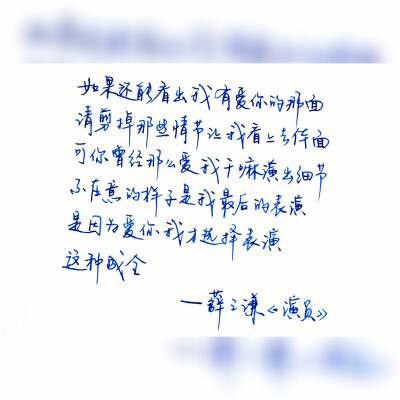 如果还能看出我有爱你的那面
请剪掉那些情节让我看上去体面
可你曾经那么爱我干嘛演出细节
不在意的样子是我最后的表演
是因为爱你我才选择表演
这种成全
—薛之谦《演员》